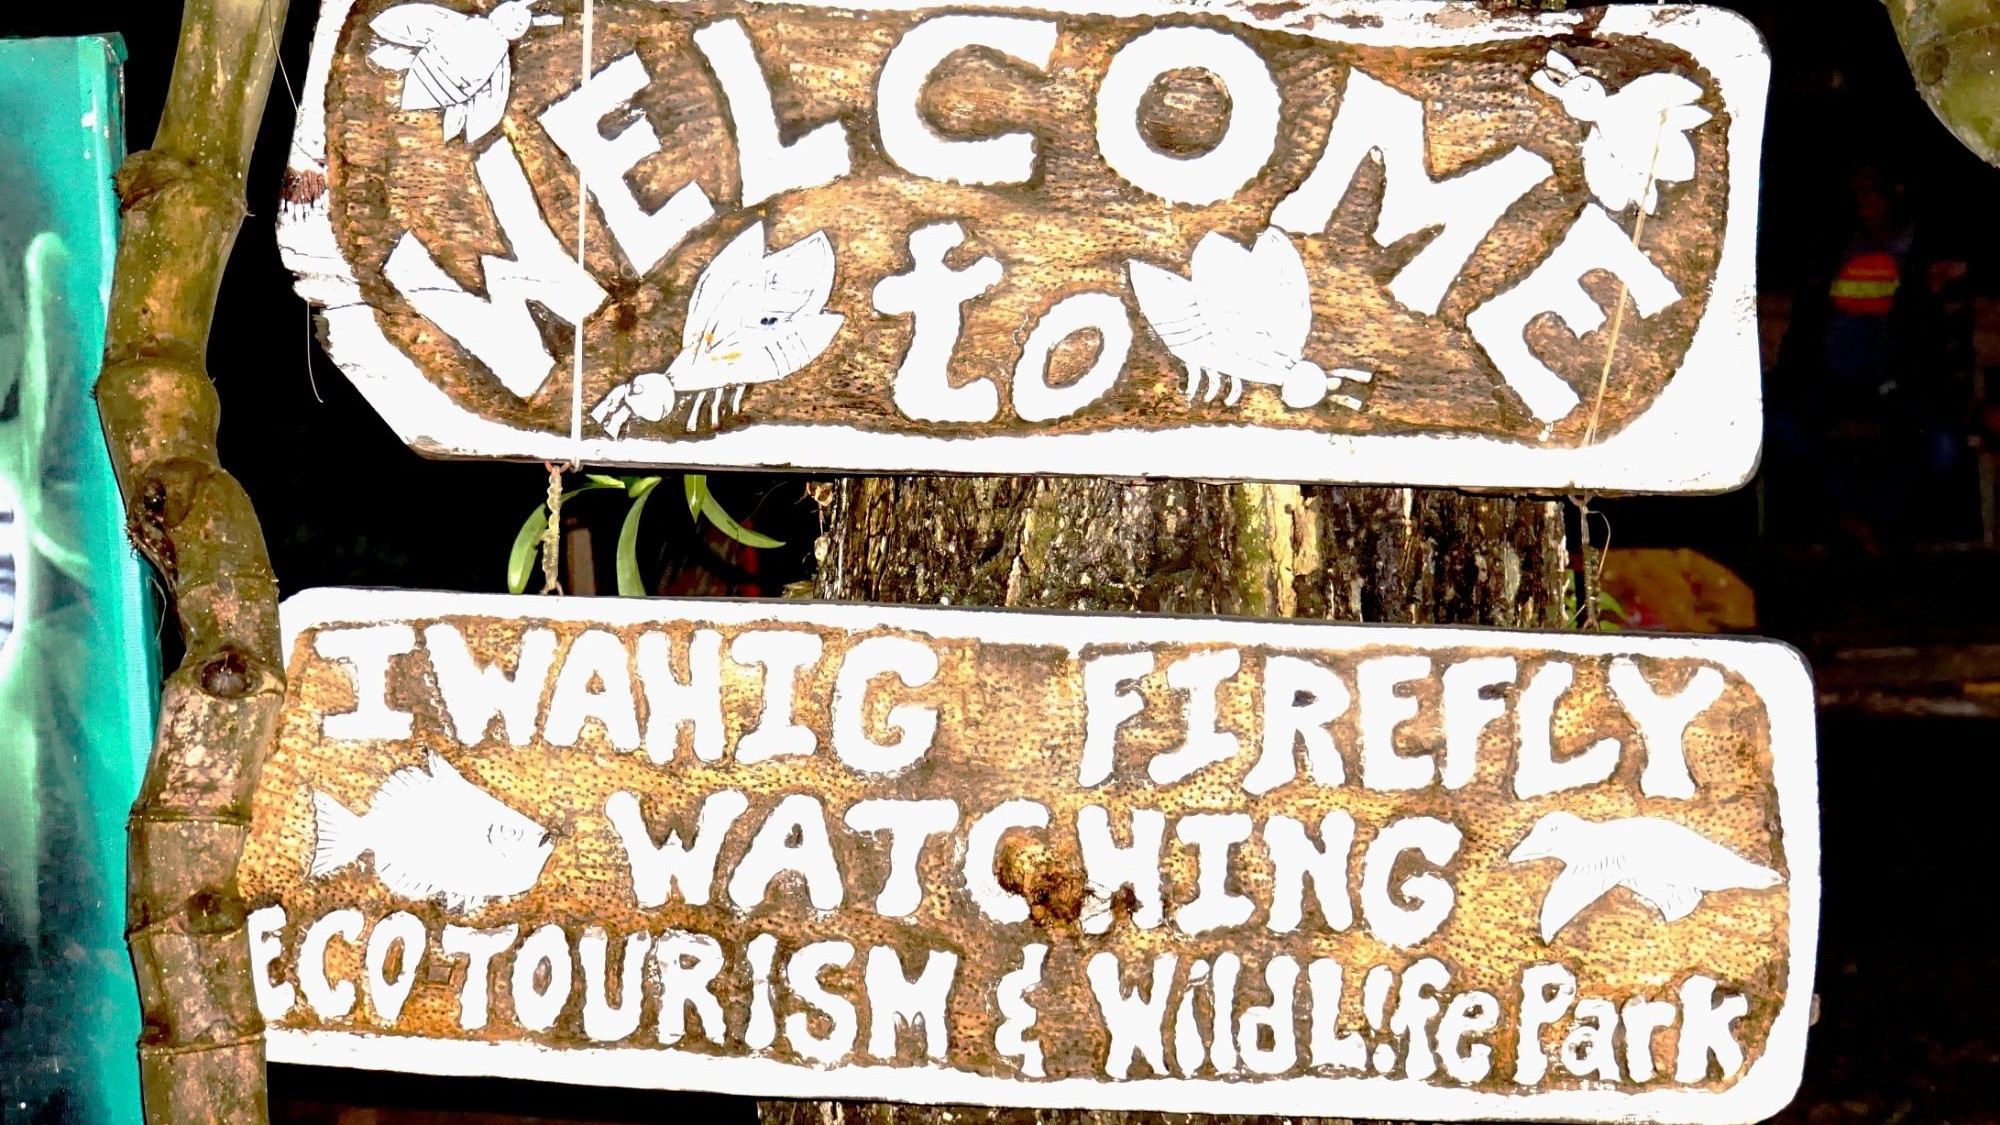 WELCOME
to
IWAHIG FIREFLY
WATCHING
ECO-TOURISM & WildLife Park